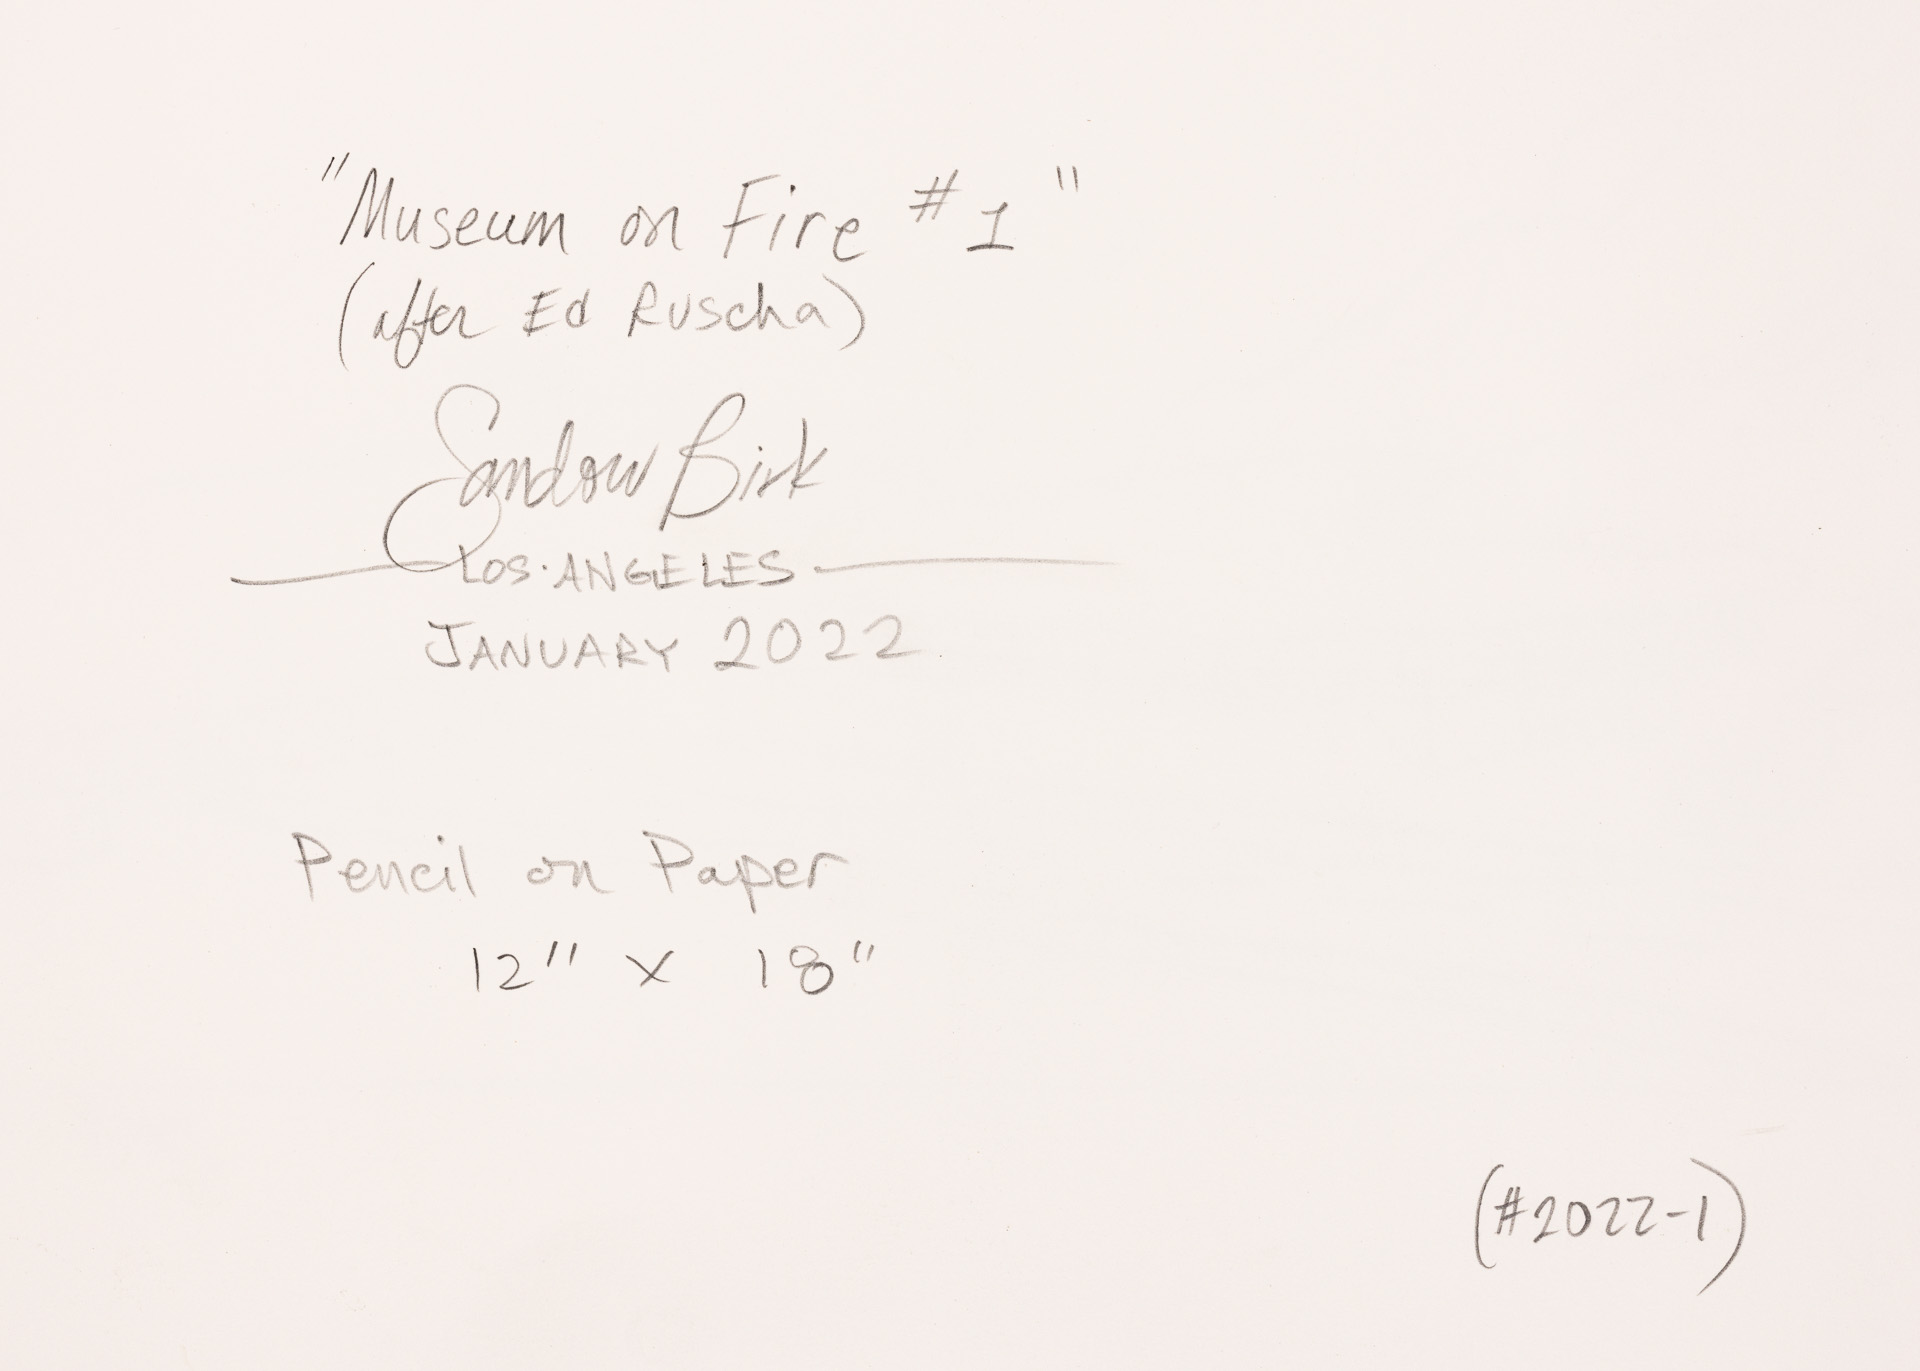 "Museum on Fire #1"
(after Ed Ruscha)
Sandow Birk
LOS·ANGELES
JANUARY 2022
Pencil on Paper
12" x 18"
(#2022-1)